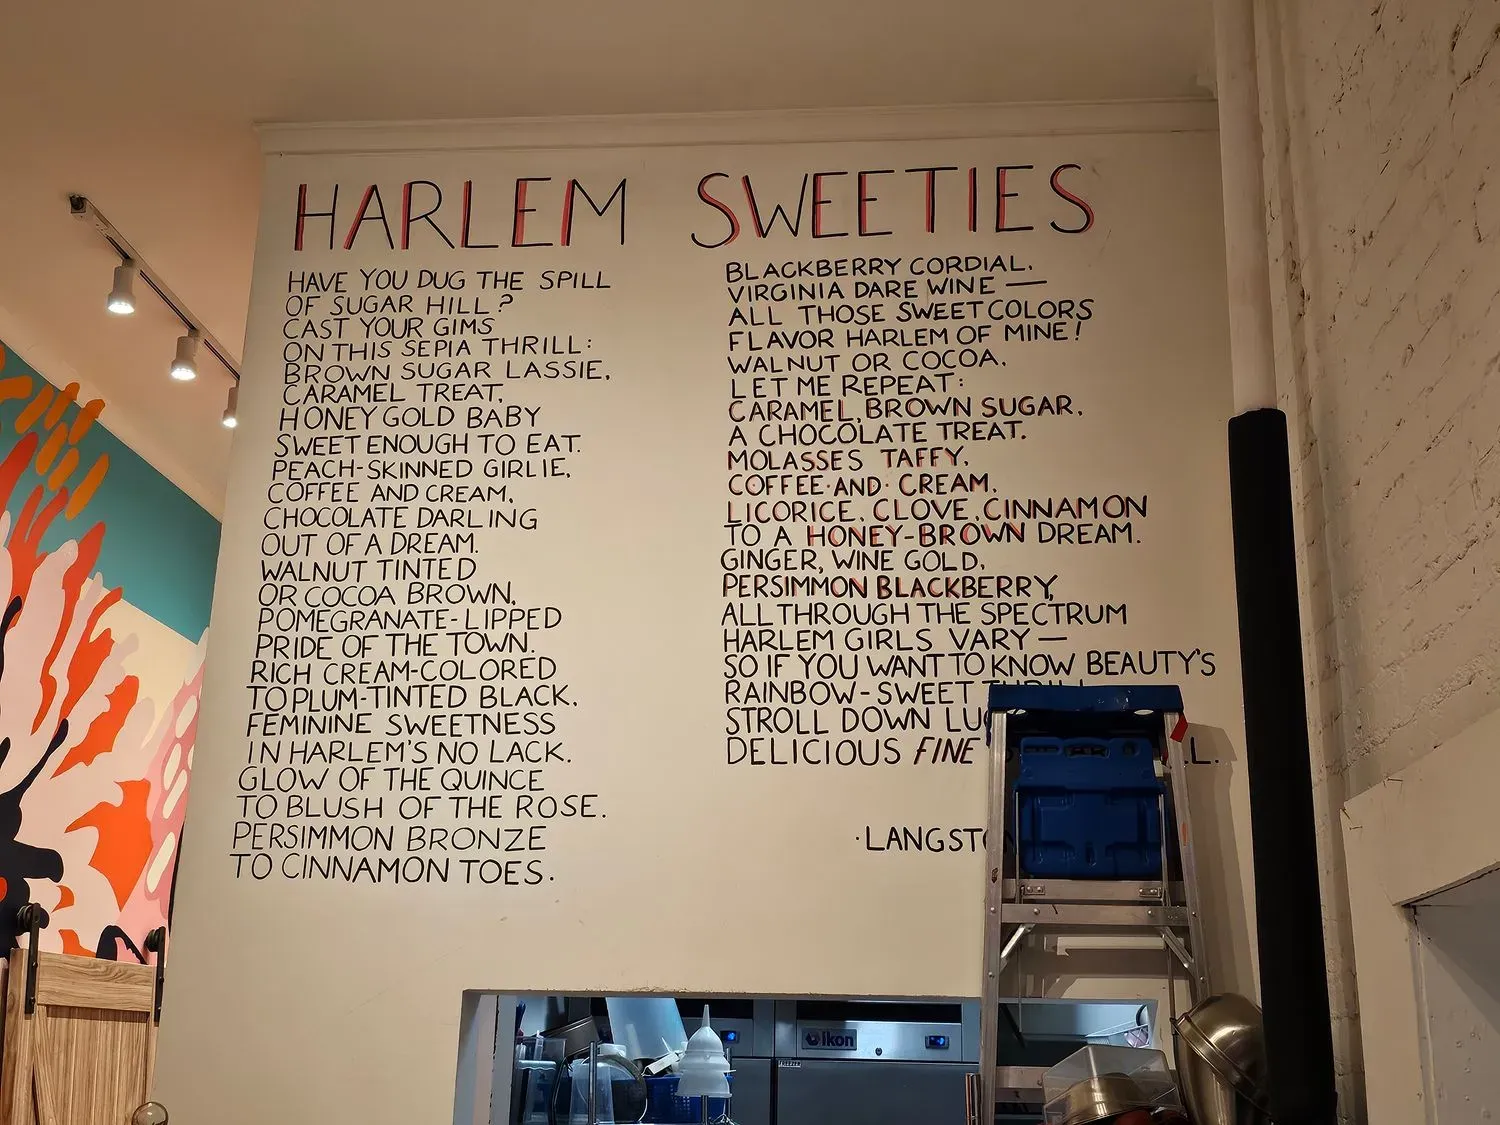 HARLEM SWEETIES
HAVE YOU DUG THE SPILL
OF SUGAR HILL?
CAST YOUR GIMS
ON THIS SEPIA THRILL:
BROWN SUGAR LASSIE,
CARAMEL TREAT,
HONEY GOLD BABY
SWEET ENOUGH TO EAT.
PEACH-SKINNED GIRLIE,
COFFEE AND CREAM,
CHOCOLATE DARLING
OUT OF A DREAM.
WALNUT TINTED
OR COCOA BROWN,
POMEGRANATE-LIPPED
PRIDE OF THE TOWN.
RICH CREAM-COLORED
TO PLUM-TINTED BLACK,
FEMININE SWEETNESS
IN HARLEM'S NO LACK.
GLOW OF THE QUINCE
TO BLUSH OF THE ROSE.
PERSIMMON BRONZE
TO CINNAMON TOES.
BLACKBERRY CORDIAL,
VIRGINIA DARE WINE —
ALL THOSE SWEET COLORS
FLAVOR HARLEM OF MINE!
WALNUT OR COCOA,
LET ME REPEAT:
CARAMEL, BROWN SUGAR,
A CHOCOLATE TREAT.
MOLASSES TAFFY,
COFFEE AND CREAM,
LICORICE, CLOVE, CINNAMON
TO A HONEY-BROWN DREAM.
GINGER, WINE GOLD,
PERSIMMON BLACKBERRY,
ALL THROUGH THE SPECTRUM
HARLEM GIRLS VARY —
SO IF YOU WANT TO KNOW BEAUTY'S
RAINBOW-SWEET THRILL
STROLL DOWN
DELICIOUS FINE
Ikon
FREEZER